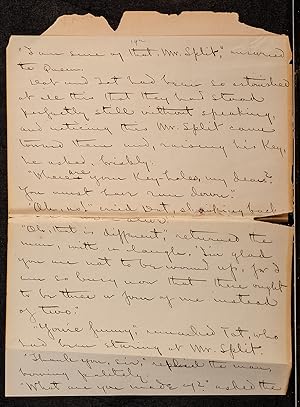 "I am sure of that, Mr. Split," answered
the Queen.
Dot and Tot had been so astonished
at all this that they had stood
perfectly still without speaking,
and noticing this Mr. Split came
toward them and, raising his Key,
he asked, briskly:
"Where are your Key-holes, my dears?
You must have run down."
"Oh, no!" said Dot, back
"Oh, that is different," returned the
man, with a laugh. "I'm glad
you are not to be wound up, for I
am so busy now that there ought
to be three or four of me instead
of two."
"You're funny," remarked Tot, who
had been staring at Mr. Split.
"Thank you, sir," replied the man,
bowing politely.
"What are you made of?" asked the